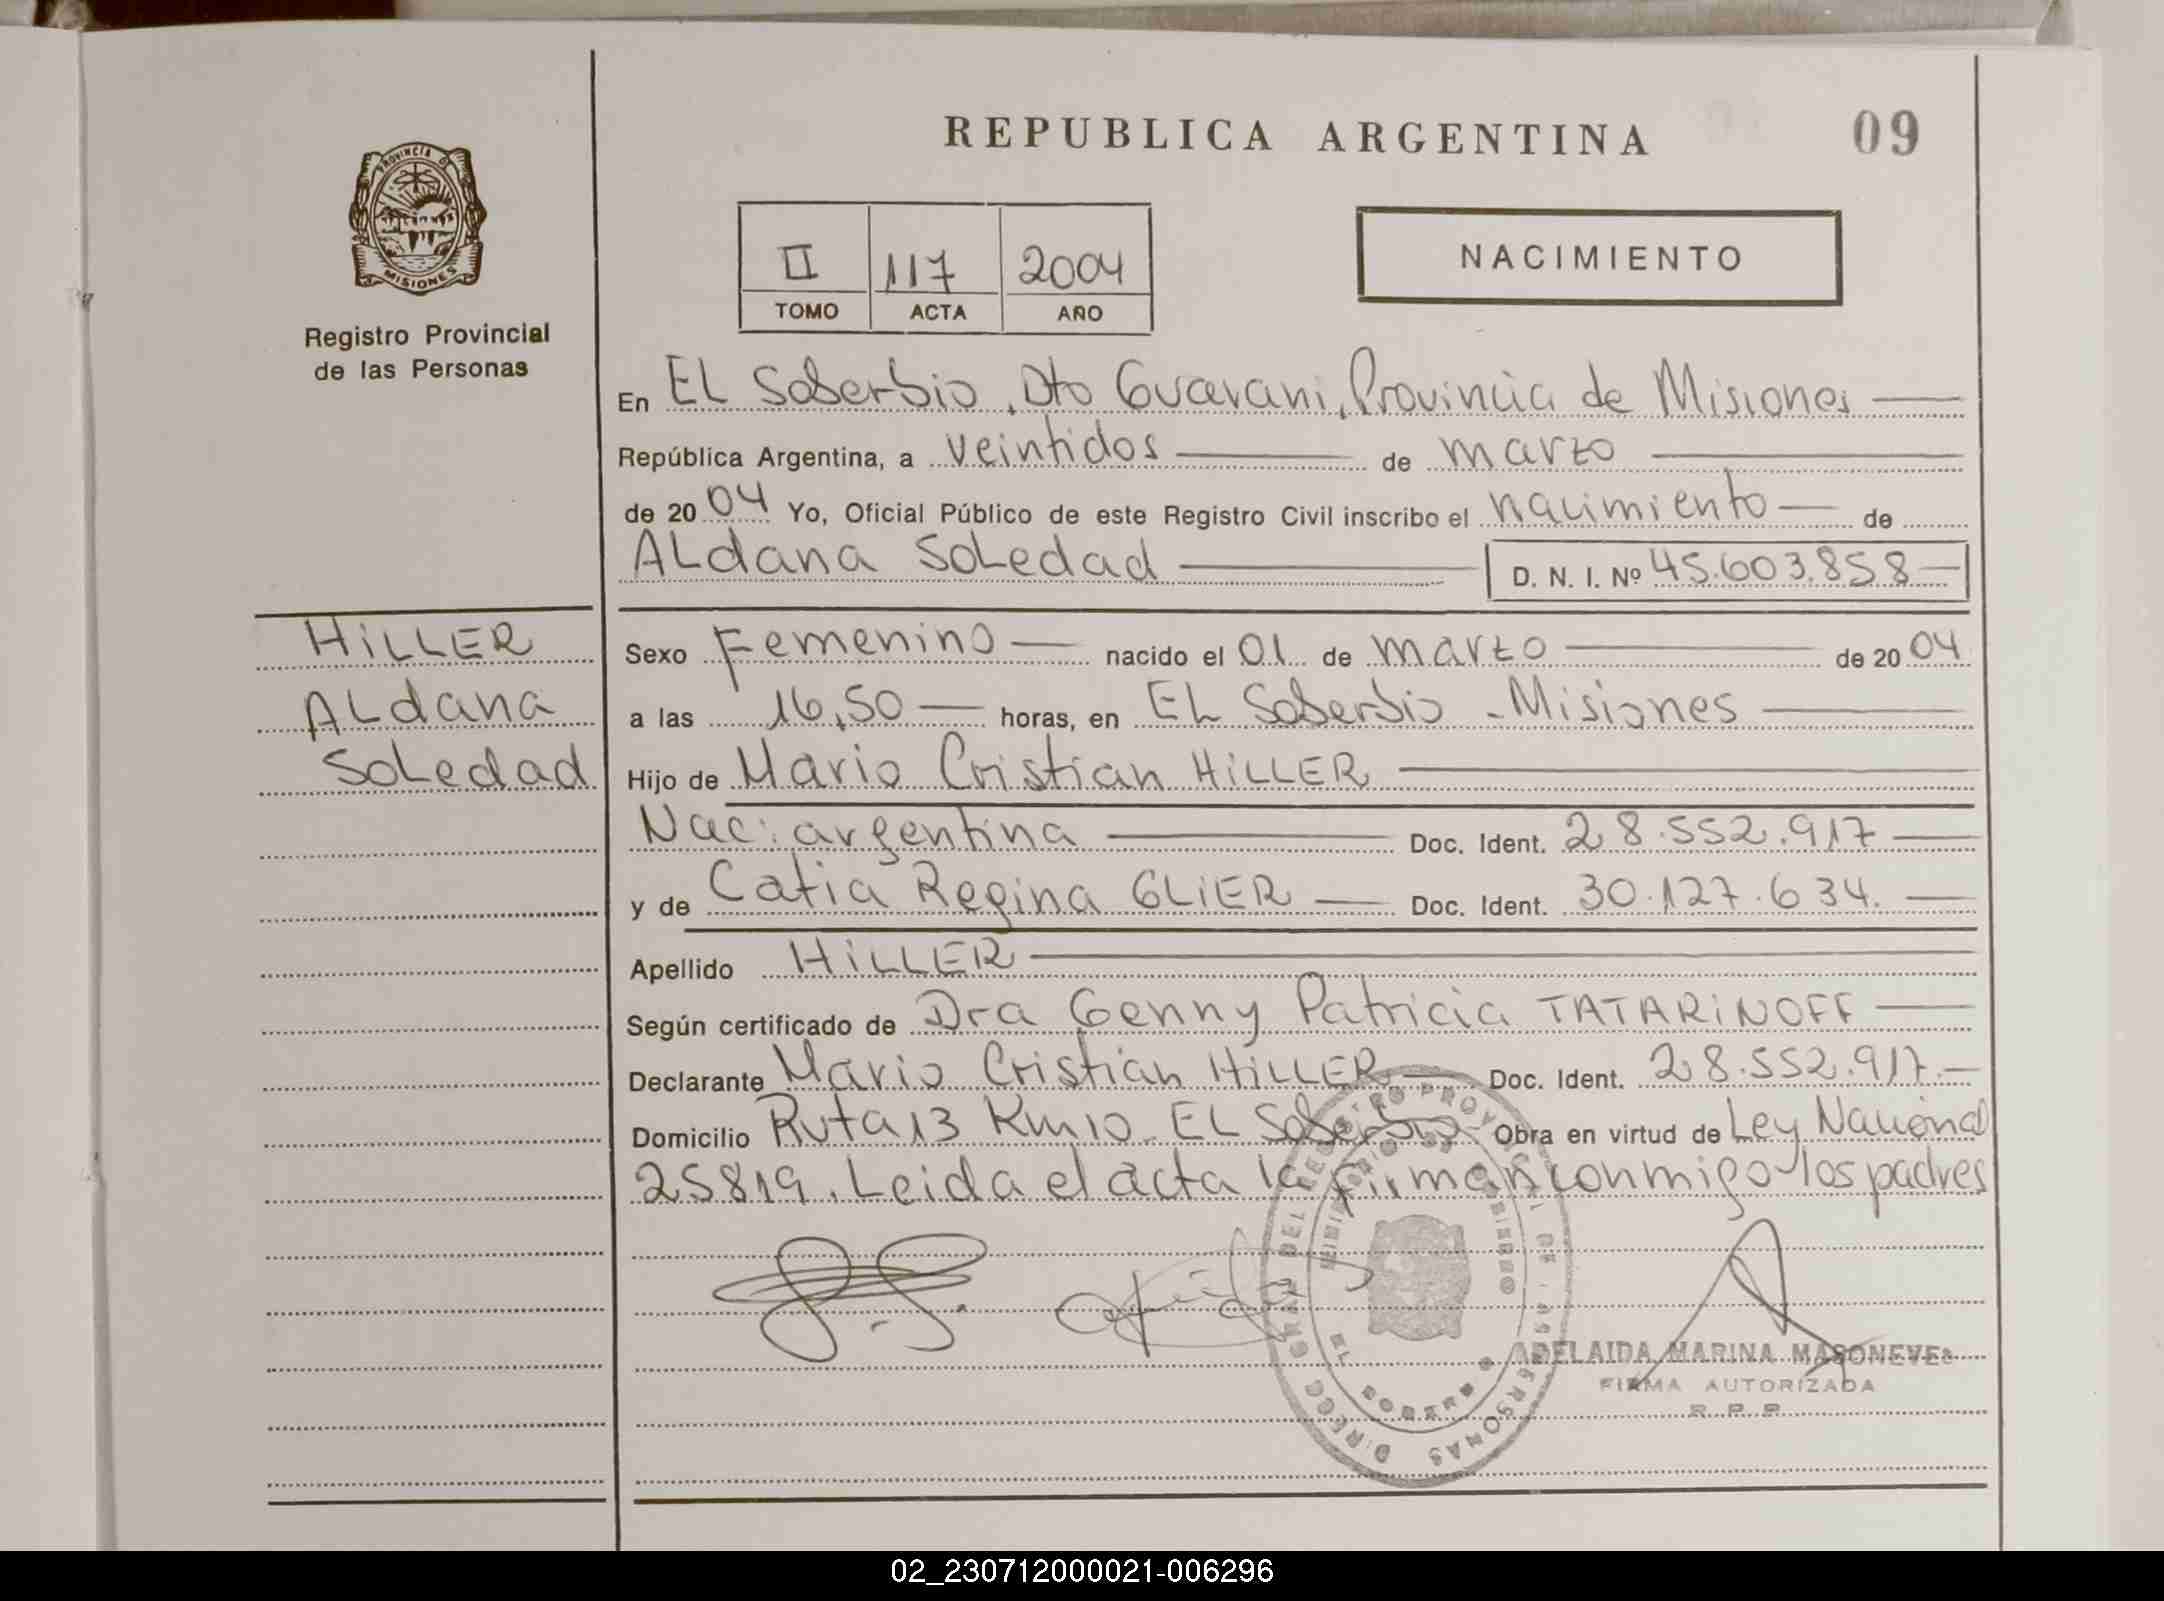 REPUBLICA ARGENTINA
09
PROVINCIA D
MISIONES
Registro Provincial
de las Personas
II 117 2004
TOMO ACTA AÑO
NACIMIENTO
En EL Soberbio, Dto Guarani, Provincia de Misiones
República Argentina, a veintidos de marzo
de 2004 Yo, Oficial Público de este Registro Civil inscribo el nacimiento de
ALdana SoLedad D. N. I. Nº 45.603.858
HiLLER
ALdana
SoLedad
Sexo Femenino nacido el 01 de marzo de 2004
a las 16,50 horas, en EL Soberbio - Misiones
Hijo de Mario Cristian HiLLER
Nac: argentina Doc. Ident. 28.552.917
y de Catia Regina GLiER Doc. Ident. 30.127.634.
Apellido HiLLER
Según certificado de Dra Genny Patricia TATARiNOFF
Declarante Mario Cristian HiLLER Doc. Ident. 28.552.917.
Domicilio Ruta 13 Km 10. EL Soberbio Obra en virtud de Ley Nacional
25819. Leida el acta la firman conmigo los padres
DIRECC GRAL DEL REGISTRO PROVINCIAL DE LAS PERSONAS
MINISTERIO DE GOBIERNO
EL SOBERBIO
ADELAIDA MARINA
FIRMA AUTORIZADA
R. P. P.
02_230712000021-006296